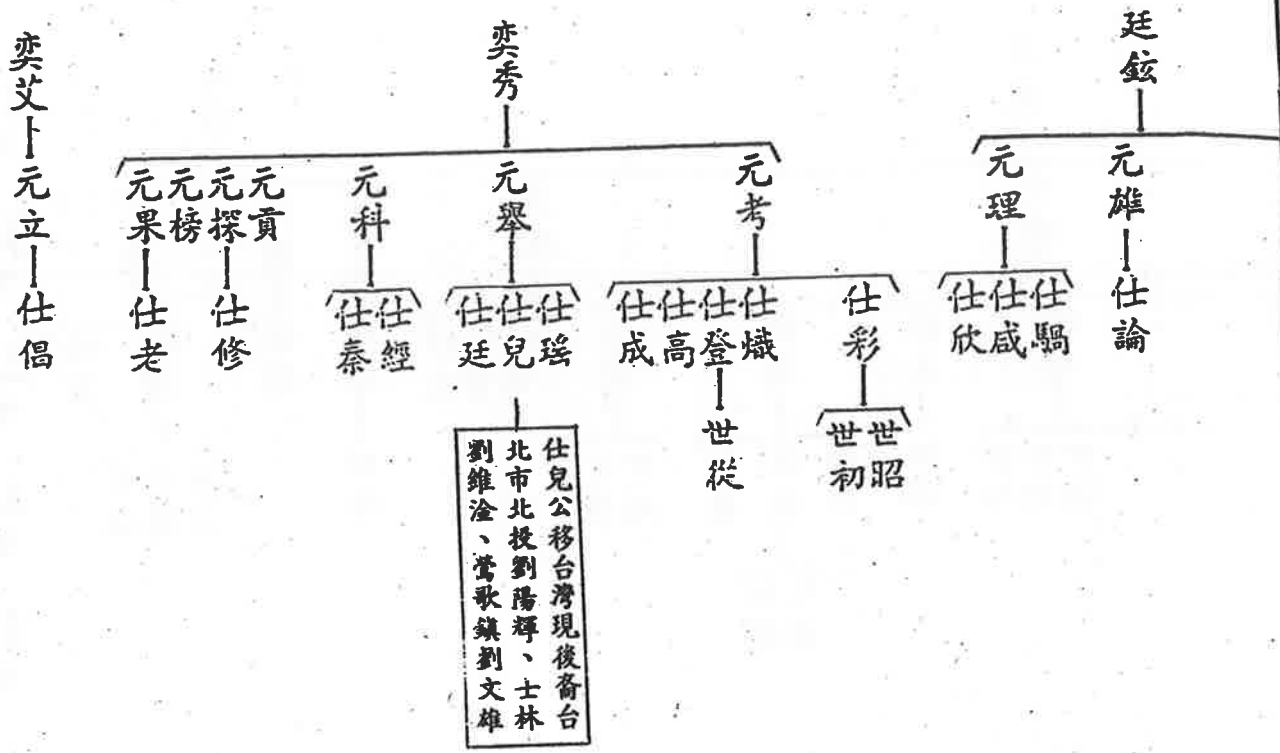 廷鉉
元雄
仕論
元理
仕騧
仕咸
仕欣
奕秀
元考
仕彩
世昭
世初
仕熾
仕登
世從
仕高
仕成
元舉
仕瑤
仕兒
仕兒公移台灣現後裔台
北市北投劉陽輝、士林
劉維淦、鶯歌鎮劉文雄
仕廷
元科
仕經
仕秦
元貢
元探
仕修
元榜
元果
仕老
奕艾
元立
仕倡